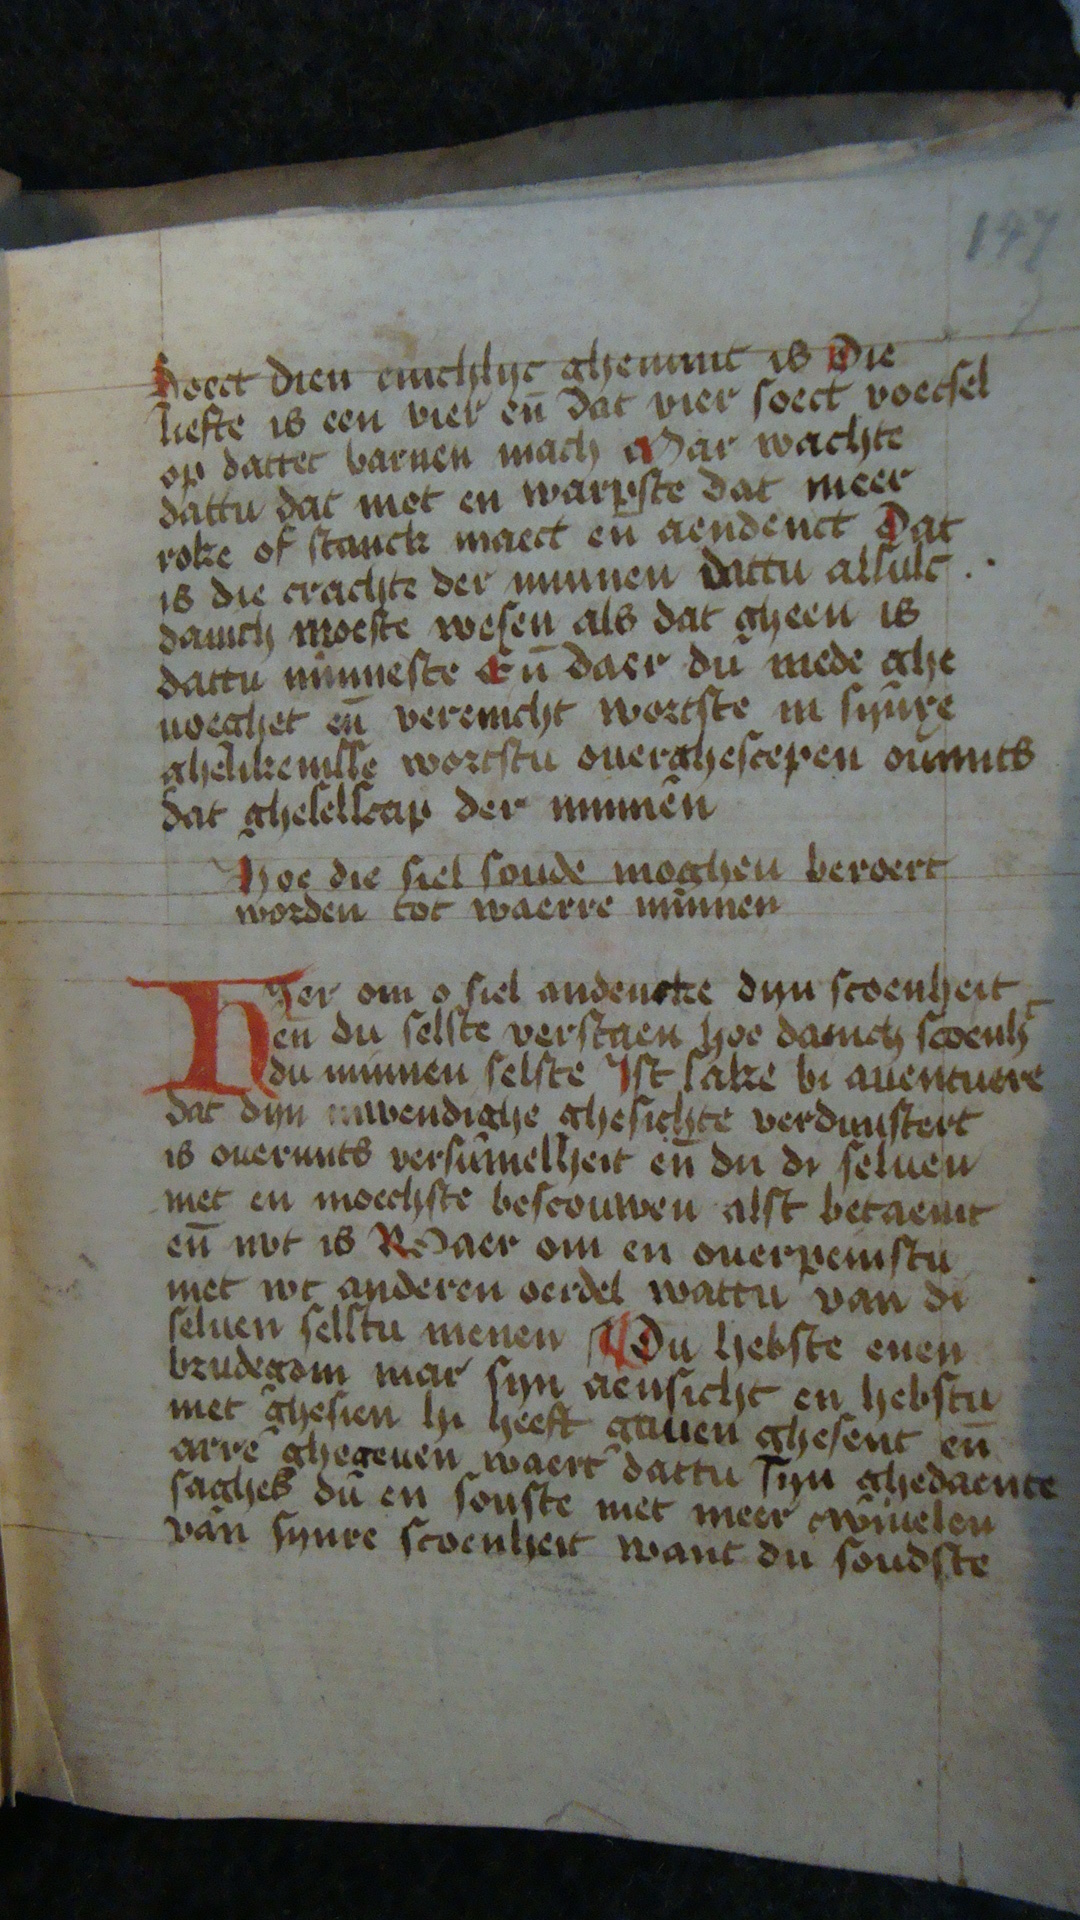 147
hoect dien enichlijc ghemint is Die
liefte is een vier en̄ dat vier soect voetsel
op dattet barnen mach Mar wachte
dattu dat niet en warpste dat meer
roke of stanck maect en̄ aendenct Dat
is die crachte der minnen dattu alsulc
danich moeste wesen als dat gheen is
dattu minneste En̄ daer du mede ghe
voeghet en̄ verenicht wortste in synre
ghelikenisse wortstu overghescepen overmits
dat ghesellscap der minnen
Hoe die siel soude moghen beroert
worden tot waerre minnen
Hier om o siel andencke dijn scoenheit
en̄ du selste verstaen hoe danich scoenh̄t
du minnen selste Ist sake bi aventuere
dat dijn inwendighe ghesichte verdunstert
is overmits versumelheit en̄ du di selven
niet en moechste bescouwen alst betaemt
en̄ nut is Waer om en overpeinstu
niet wt anderen oerdel wattu van di
selven selstu menen Du hebste enen
brudegom mar sijn aensicht en hebstu
niet ghesien hi heeft gaven ghesent en̄
arrē ghegeven waert dattu sijn ghedaente
saghes du en souste niet meer twivelen
van synre scoenheit want du soudste